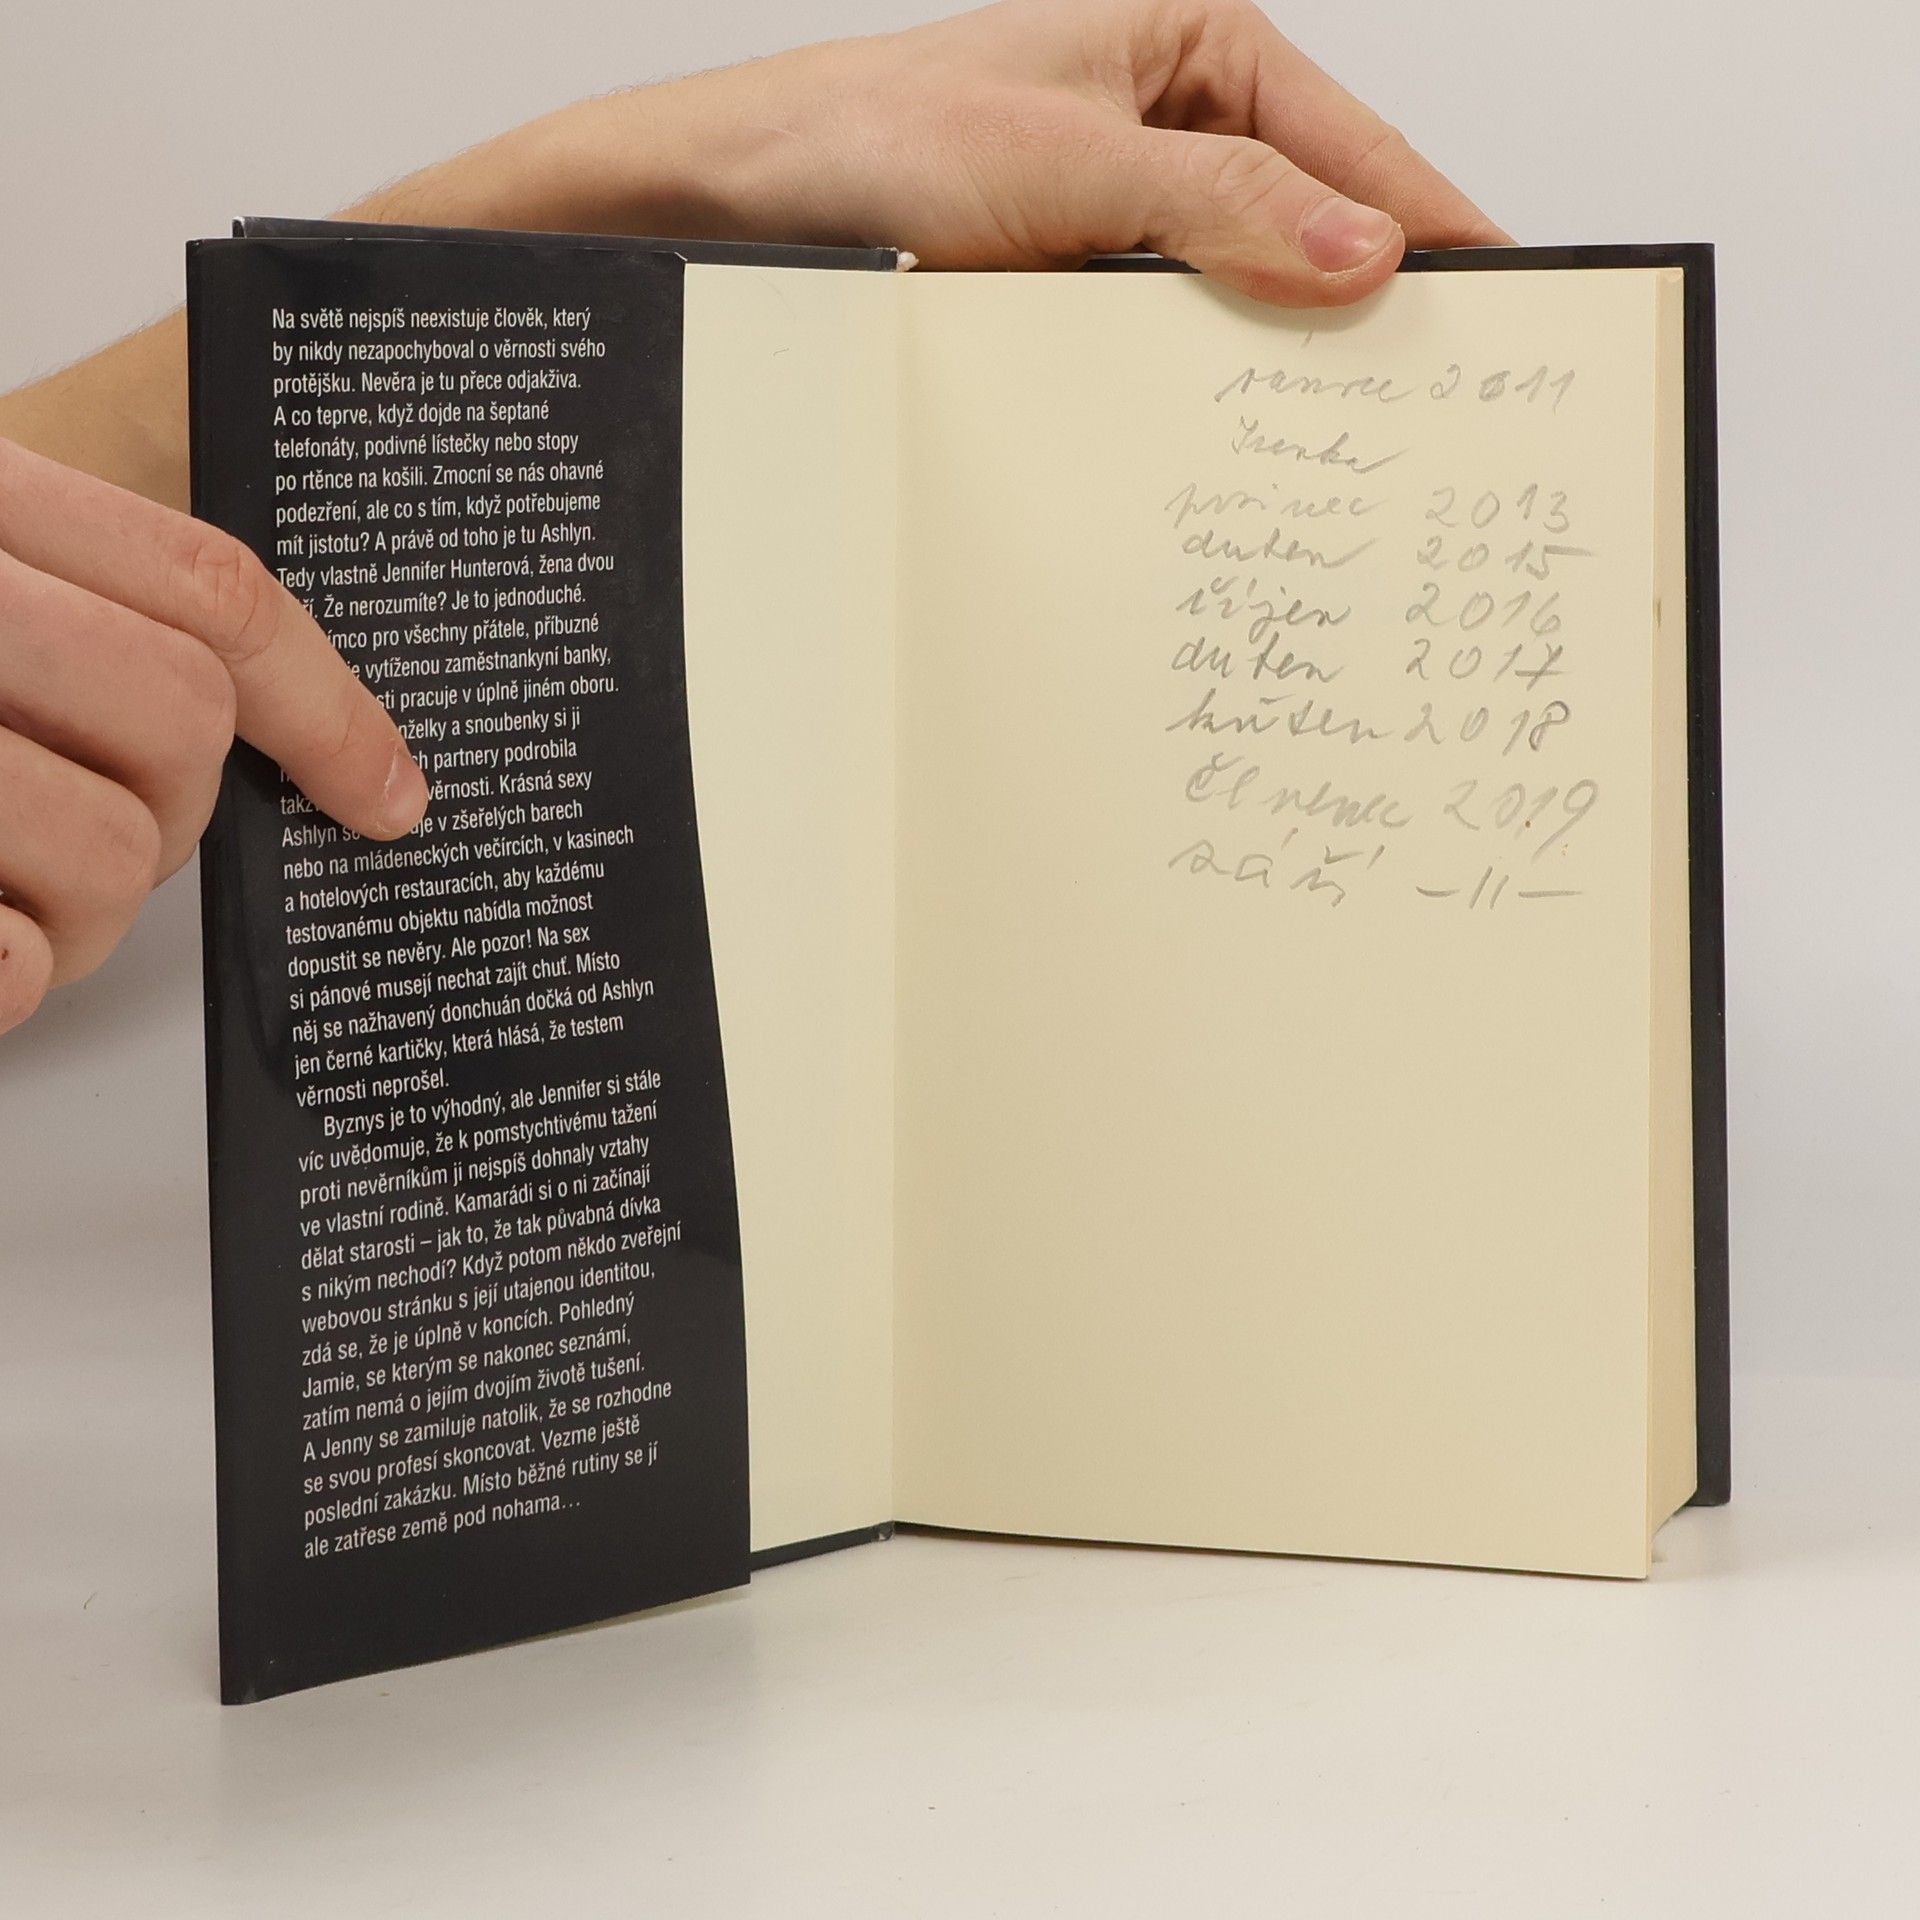 Na světě nejspíš neexistuje člověk, který
by nikdy nezapochyboval o věrnosti svého
protějšku. Nevěra je tu přece odjakživa.
A co teprve, když dojde na šeptané
telefonáty, podivné lístečky nebo stopy
po rtěnce na košili. Zmocní se nás ohavné
podezření, ale co s tím, když potřebujeme
mít jistotu? A právě od toho je tu Ashlyn.
Tedy vlastně Jennifer Hunterová, žena dvou
Že nerozumíte? Je to jednoduché.
pro všechny přátele, příbuzné
vytíženou zaměstnankyní banky,
pracuje v úplně jiném oboru.
a snoubenky si ji
partnery podrobila
věrnosti. Krásná sexy
Ashlyn v zšeřelých barech
nebo na mládeneckých večírcích, v kasinech
a hotelových restauracích, aby každému
testovanému objektu nabídla možnost
dopustit se nevěry. Ale pozor! Na sex
si pánové musejí nechat zajít chuť. Místo
něj se nažhavený donchuán dočká od Ashlyn
jen černé kartičky, která hlásá, že testem
věrnosti neprošel.
Byznys je to výhodný, ale Jennifer si stále
víc uvědomuje, že k pomstychtivému tažení
proti nevěrníkům ji nejspíš dohnaly vztahy
ve vlastní rodině. Kamarádi si o ni začínají
dělat starosti – jak to, že tak půvabná dívka
s nikým nechodí? Když potom někdo zveřejní
webovou stránku s její utajenou identitou,
zdá se, že je úplně v koncích. Pohledný
Jamie, se kterým se nakonec seznámí,
zatím nemá o jejím dvojím životě tušení.
A Jenny se zamiluje natolik, že se rozhodne
se svou profesí skoncovat. Vezme ještě
poslední zakázku. Místo běžné rutiny se jí
ale zatřese země pod nohama…
2011
Irenka
prosinec 2013
duben 2015
říjen 2016
duben 2017
květen 2018
červenec 2019
září –II–